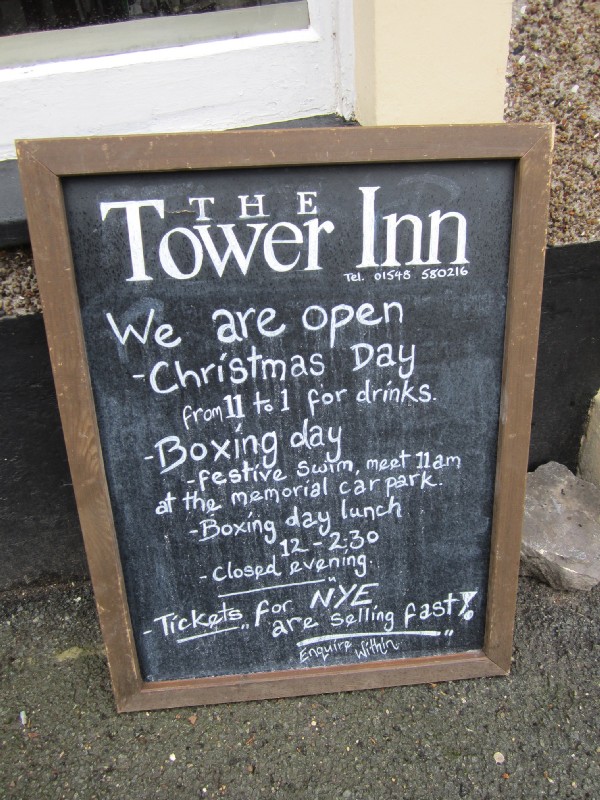 THE
Tower Inn
Tel. 01548 580216
We are open
-Christmas Day
from 11 to 1 for drinks.
-Boxing day
-festive swim, meet 11am
at the memorial car park.
-Boxing day lunch
12-2:30
-Closed evening.
-Tickets for NYE
are selling fast!
Enquire Within